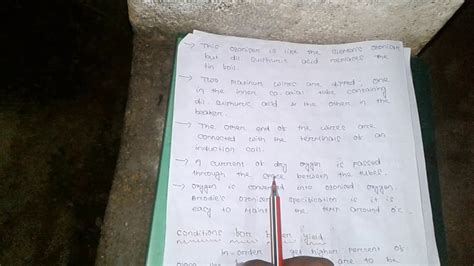 → This ozoniser is like the siemen's ozoniser
but dil sulphuric acid replaces the
tin foil.
→ Two platinum wires are dipped, one
in the inner co-axial tube containing
dil. sulphuric acid & the other in the
beaker.
→ The other end of the wires are
connected with the terminals of an
induction coil.
→ A current of dry oxygen is passed
through the space between the tubes.
→ oxygen is converted into ozonised oxygen.
Brodie's ozoniser specification is it is
easy to maint the temp around 0°C.
conditions for higher yield
In-order get higher percent of
are to be